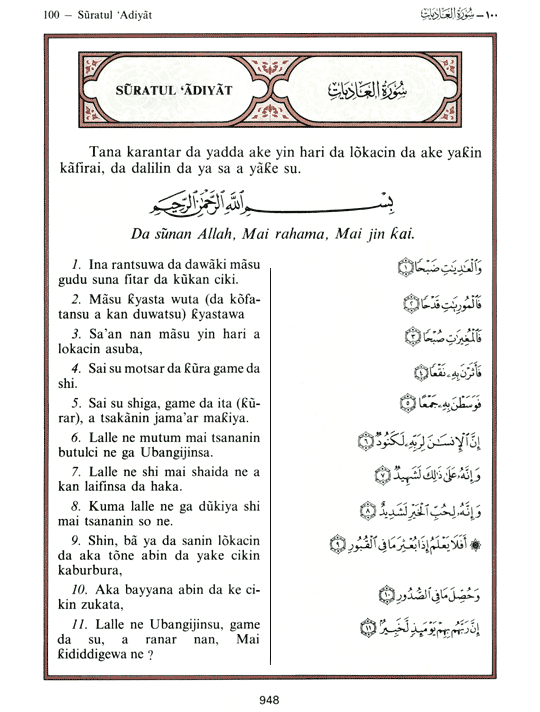 100 — Sũratul ‘Adiyãt
١٠٠ — سُورَةُ العَادِيَاتِ
SŨRATUL ‘ÃDIYÃT
سُورَةُ العَادِيَاتِ
Tana karantar da yadda ake yin hari da lõkacin da ake yaƙin
kãfirai, da dalilin da ya sa a yãƙe su.
بِسْمِ ٱللَّهِ ٱلرَّحْمَٰنِ ٱلرَّحِيمِ
Da sũnan Allah, Mai rahama, Mai jin ƙai.
1. Ina rantsuwa da dawãki mãsu
gudu suna fitar da kũkan ciki.
2. Mãsu ƙyasta wuta (da kõfa-
tansu a kan duwatsu) ƙyastawa
3. Sa’an nan mãsu yin hari a
lokacin asuba,
4. Sai su motsar da ƙũra game da
shi.
5. Sai su shiga, game da ita (ƙũ-
rar), a tsakãnin jama’ar maƙiya.
6. Lalle ne mutum mai tsananin
butulci ne ga Ubangijinsa.
7. Lalle ne shi mai shaida ne a
kan laifinsa da haka.
8. Kuma lalle ne ga dũkiya shi
mai tsananin so ne.
9. Shin, bã ya da sanin lõkacin
da aka tõne abin da yake cikin
kaburbura,
10. Aka bayyana abin da ke ci-
kin zukata,
11. Lalle ne Ubangijinsu, game
da su, a ranar nan, Mai
ƙididdigewa ne ?
وَٱلْعَٰدِيَٰتِ ضَبْحًا ١
فَٱلْمُورِيَٰتِ قَدْحًا ٢
فَٱلْمُغِيرَٰتِ صُبْحًا ٣
فَأَثَرْنَ بِهِۦ نَقْعًا ٤
فَوَسَطْنَ بِهِۦ جَمْعًا ٥
إِنَّ ٱلْإِنسَٰنَ لِرَبِّهِۦ لَكَنُودٌ ٦
وَإِنَّهُۥ عَلَىٰ ذَٰلِكَ لَشَهِيدٌ ٧
وَإِنَّهُۥ لِحُبِّ ٱلْخَيْرِ لَشَدِيدٌ ٨
۞ أَفَلَا يَعْلَمُ إِذَا بُعْثِرَ مَا فِي ٱلْقُبُورِ ٩
وَحُصِّلَ مَا فِي ٱلصُّدُورِ ١٠
إِنَّ رَبَّهُم بِهِمْ يَوْمَئِذٍ لَّخَبِيرٌۢ ١١
948